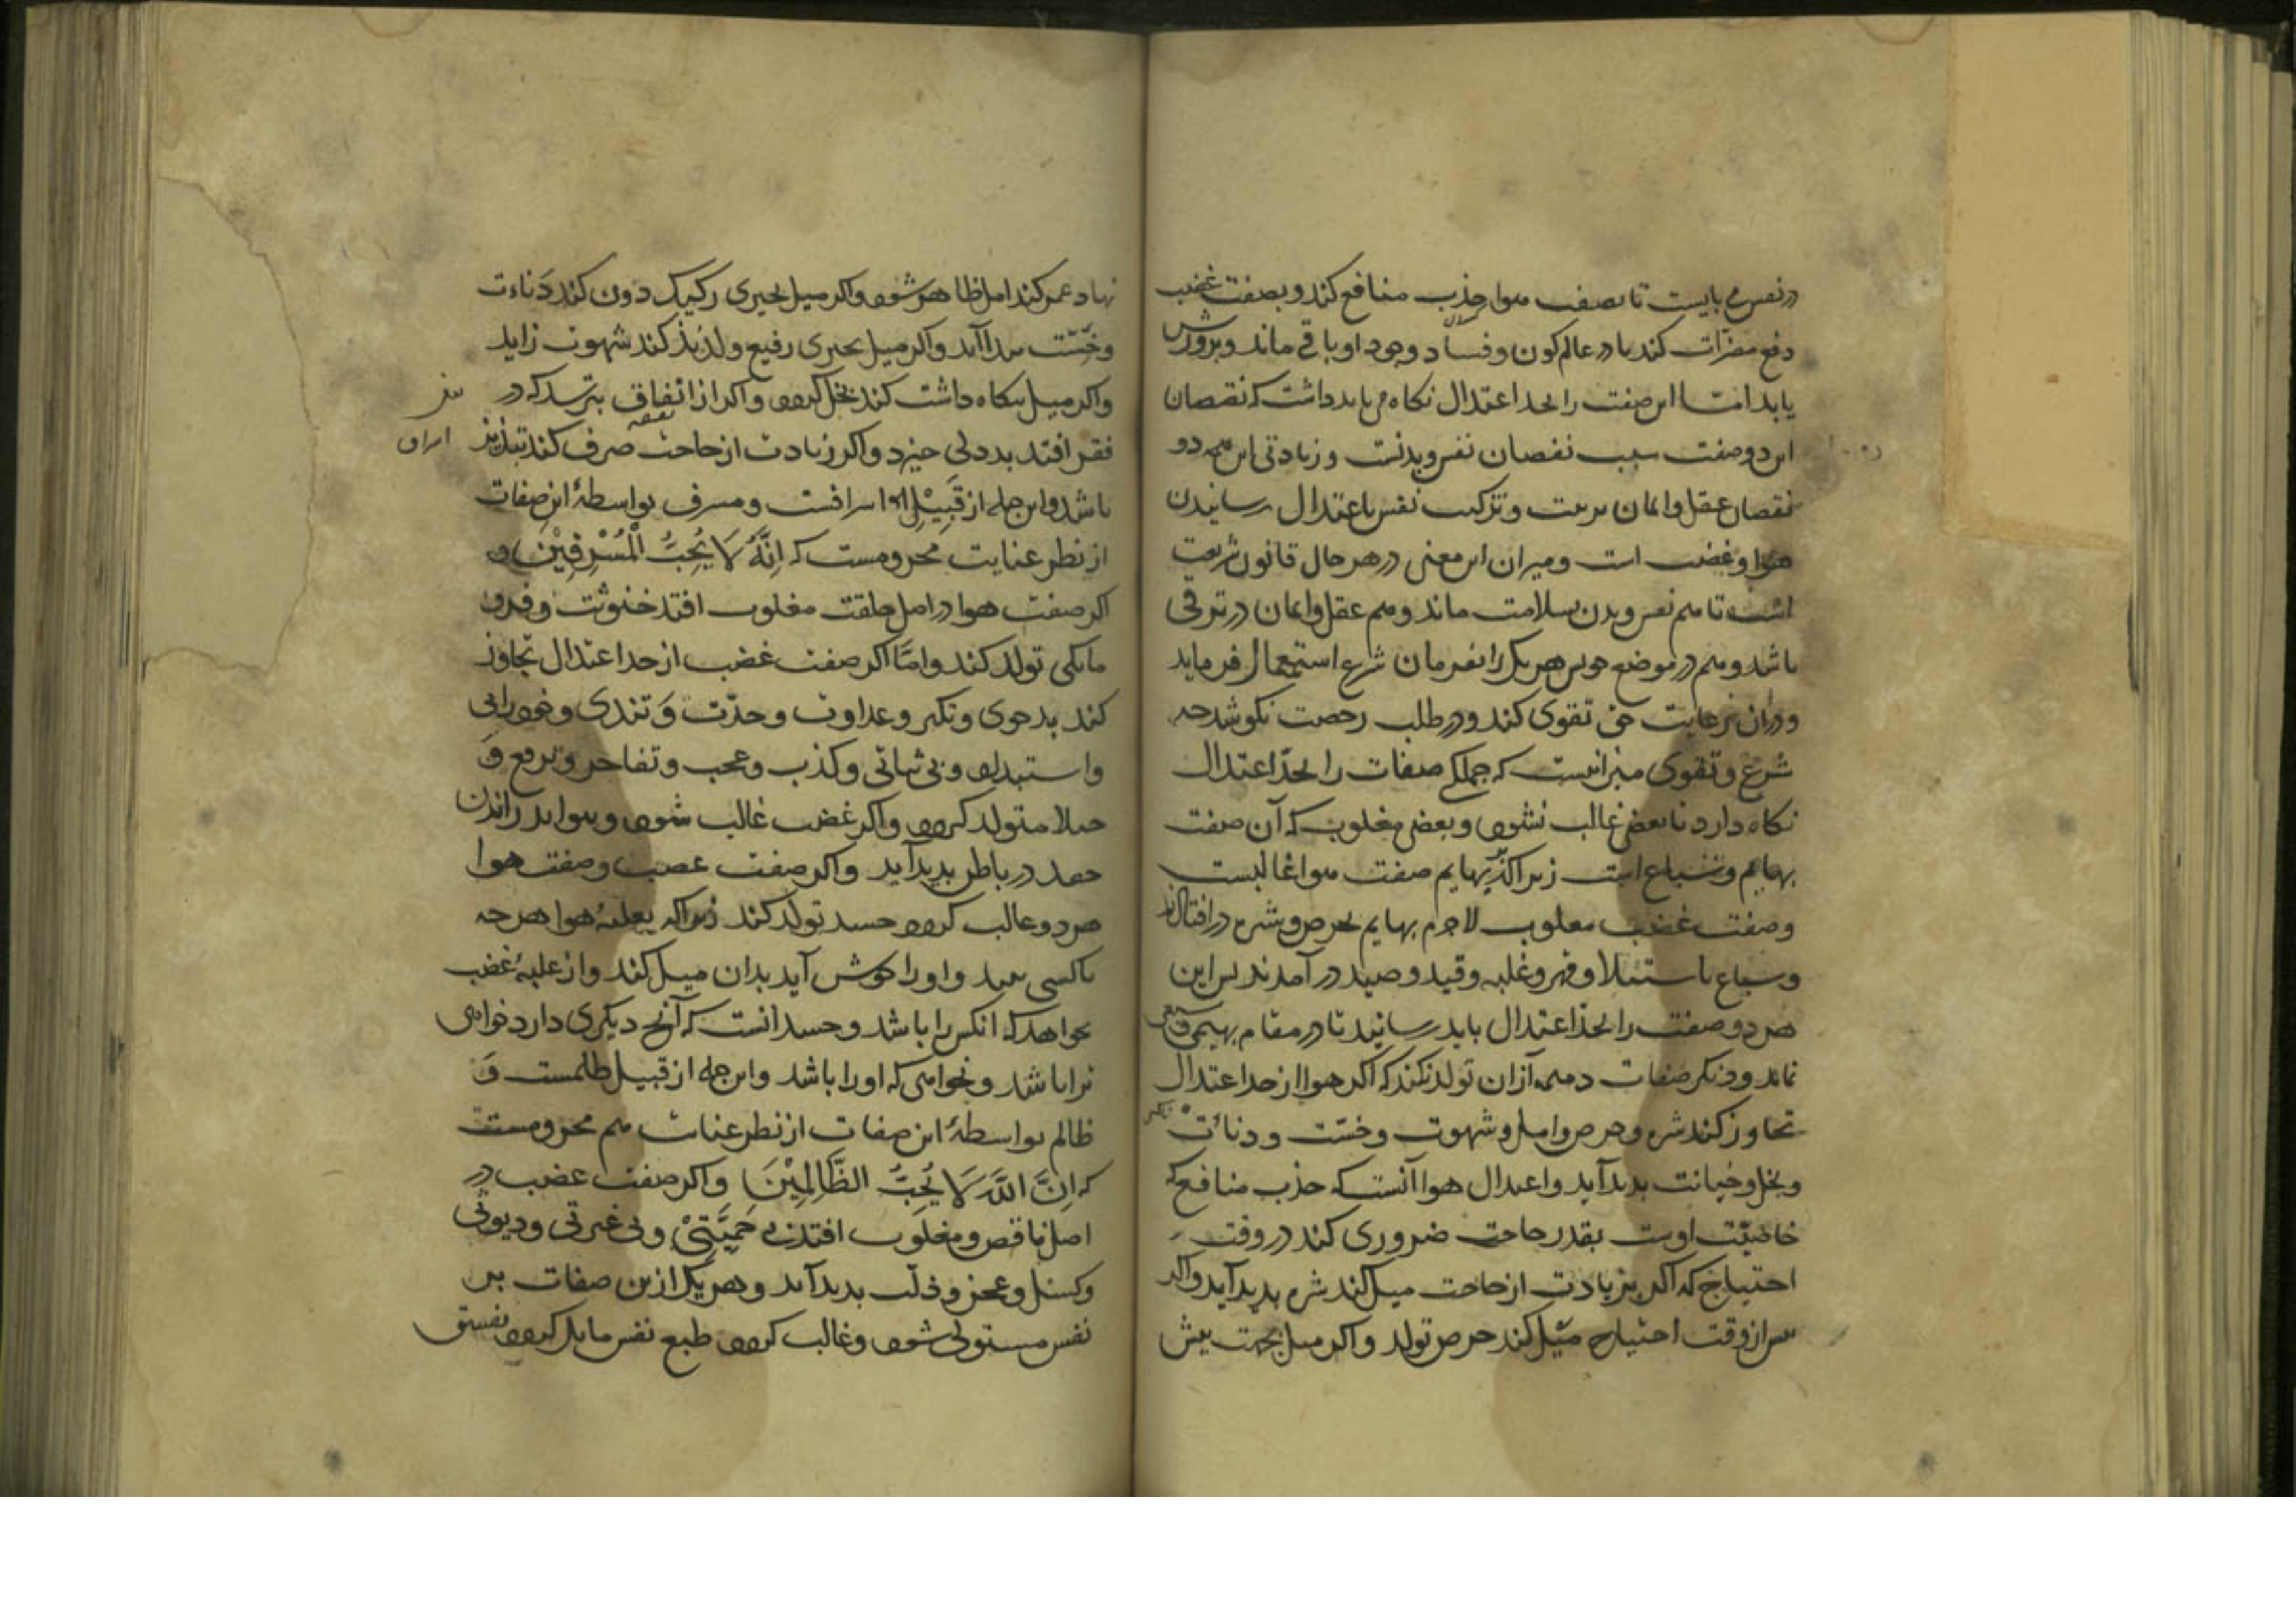 در نفس می بایست تا بصفت هوا جذب منافع کند و بصفت غضب
دفع مضرات کند تا در عالم کون و فساد وجود او باقی ماند و پرورش
یابد اما این صفت را بحد اعتدال نکاه می باید داشت که نقصان
این دو صفت سبب نقصان نفس و بدنست و زیادتی این همه دو
نقصان عقل و ایمان تربیت و تزکیت نفس باعتدال رسانیدن
هوا و غضب است و میزان این معنی در هر حال قانون شریعت
است تا هم نفس و بدن بسلامت ماند و هم عقل و ایمان در ترقی
باشد و هم در موضع خویش هر یک را بفرمان شرع استعمال فرماید
و در آن رعایت حق تقوی کند و در طلب رخصت نکوشد چه
شرع و تقوی میزانیست که جملکی صفات را بحد اعتدال
نکاه دارد تا بعضی غالب نشود و بعضی مغلوب که آن صفت
بهایم و سباع است زیرا که بر بهایم صفت هوا غالبست
و صفت غضب مغلوب لاجرم بهایم بحرص و شره در افتادند
و سباع باستیلا و قهر و غلبه و قید و صید در آمدند پس این
هر دو صفت را بحد اعتدال باید رسانید تا در مقام بهیمی و سبعی
نماند و دیکر صفات ذمیمه از آن تولد نکند که اکر هوا از حد اعتدال
تجاوز کند شره و حرص و امل و شهوت و خست و دنائت
و بخل و خیانت بدید آید و اعتدال هوا آنست که جذب منافع که
خاصیت اوست بقدر حاجت ضروری کند در وقت
احتیاج که اکر بزیادت از حاجت میل کند شره بدید آید و اکر
پیش از وقت احتیاج میل کند حرص تولد و اکر میل بجهت پیش
نهاد عمر کند امل ظاهر شود و اکر میل بچیزی رکیک دون کند دناءت
و خست پیدا آید و اکر میل بچیزی رفیع و لذیذ کند شهوت زاید
و اکر میل بنکاه داشت کند بخل کردد و اکر از انفاق بترسد که در
فقر افتد بددلی خیزد و اکر زیادت از حاجت صرف کند تبذیر
باشد و این جمله از قبیل اسرافست و مسرف بواسطهٔ این صفات
از نظر عنایت محرومست که اِنَّهُ لَا یُحِبُّ الْمُسْرِفِیْنَ و
اکر صفت هوا در اصل خلقت مغلوب افتد خنوثت و فرو
مایکی تولد کند و امّا اکر صفت غضب از حد اعتدال تجاوز
کند بدخوی و تکبر و عداوت و حدّت و تندی و خودرایی
و استبداد و بی ثباتی و کذب و عجب و تفاخر و ترفع و
خیلا متولد کردد و اکر غضب غالب شود و بتواند راندن
حقد در باطن بدید آید و اکر صفت غضب و صفت هوا
هر دو غالب کردد حسد تولد کند زیرا که بغلبهٔ هوا هر چه
با کسی بیند و او را خوش آید بدان میل کند و از غلبهٔ غضب
نخواهد که آنکس را باشد و حسد آنست که آنچ دیکری دارد خواهی
ترا باشد و نخواهی که او را باشد و این جمله از قبیل ظلمست و
ظالم بواسطهٔ این صفات از نظر عنایت هم محرومست
که اِنَّ اللَّهَ لَا یُحِبُّ الظَّالِمِیْنَ و اکر صفت غضب در
اصل ناقص و مغلوب افتد بی حَمِیَّتِیْ و بی غیرتی و دیوثی
و کسل و عجز و ذلت بدید آید و هر یک ازین صفات بر
نفس مستولی شود و غالب کردد طبع نفس مایل کردد